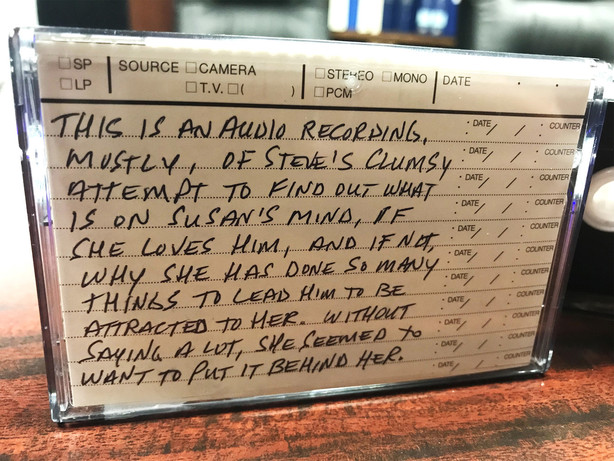 □SP SOURCE □CAMERA □STEREO □MONO DATE
□LP □T.V. □( ) □PCM
THIS IS AN AUDIO RECORDING, · DATE / / : COUNTER
MOSTLY, OF STEVE'S CLUMSY · DATE / / : COUNTER
ATTEMPT TO FIND OUT WHAT · DATE / / : COUNTER
IS ON SUSAN'S MIND, IF · DATE / / : COUNTER
SHE LOVES HIM, AND IF NOT, · DATE / / : COUNTER
WHY SHE HAS DONE SO MANY · DATE / / : COUNTER
THINGS TO LEAD HIM TO BE · DATE / / : COUNTER
ATTRACTED TO HER. WITHOUT · DATE / / : COUNTER
SAYING A LOT, SHE SEEMED TO · DATE / / : COUNTER
WANT TO PUT IT BEHIND HER. · DATE / / : COUNTER